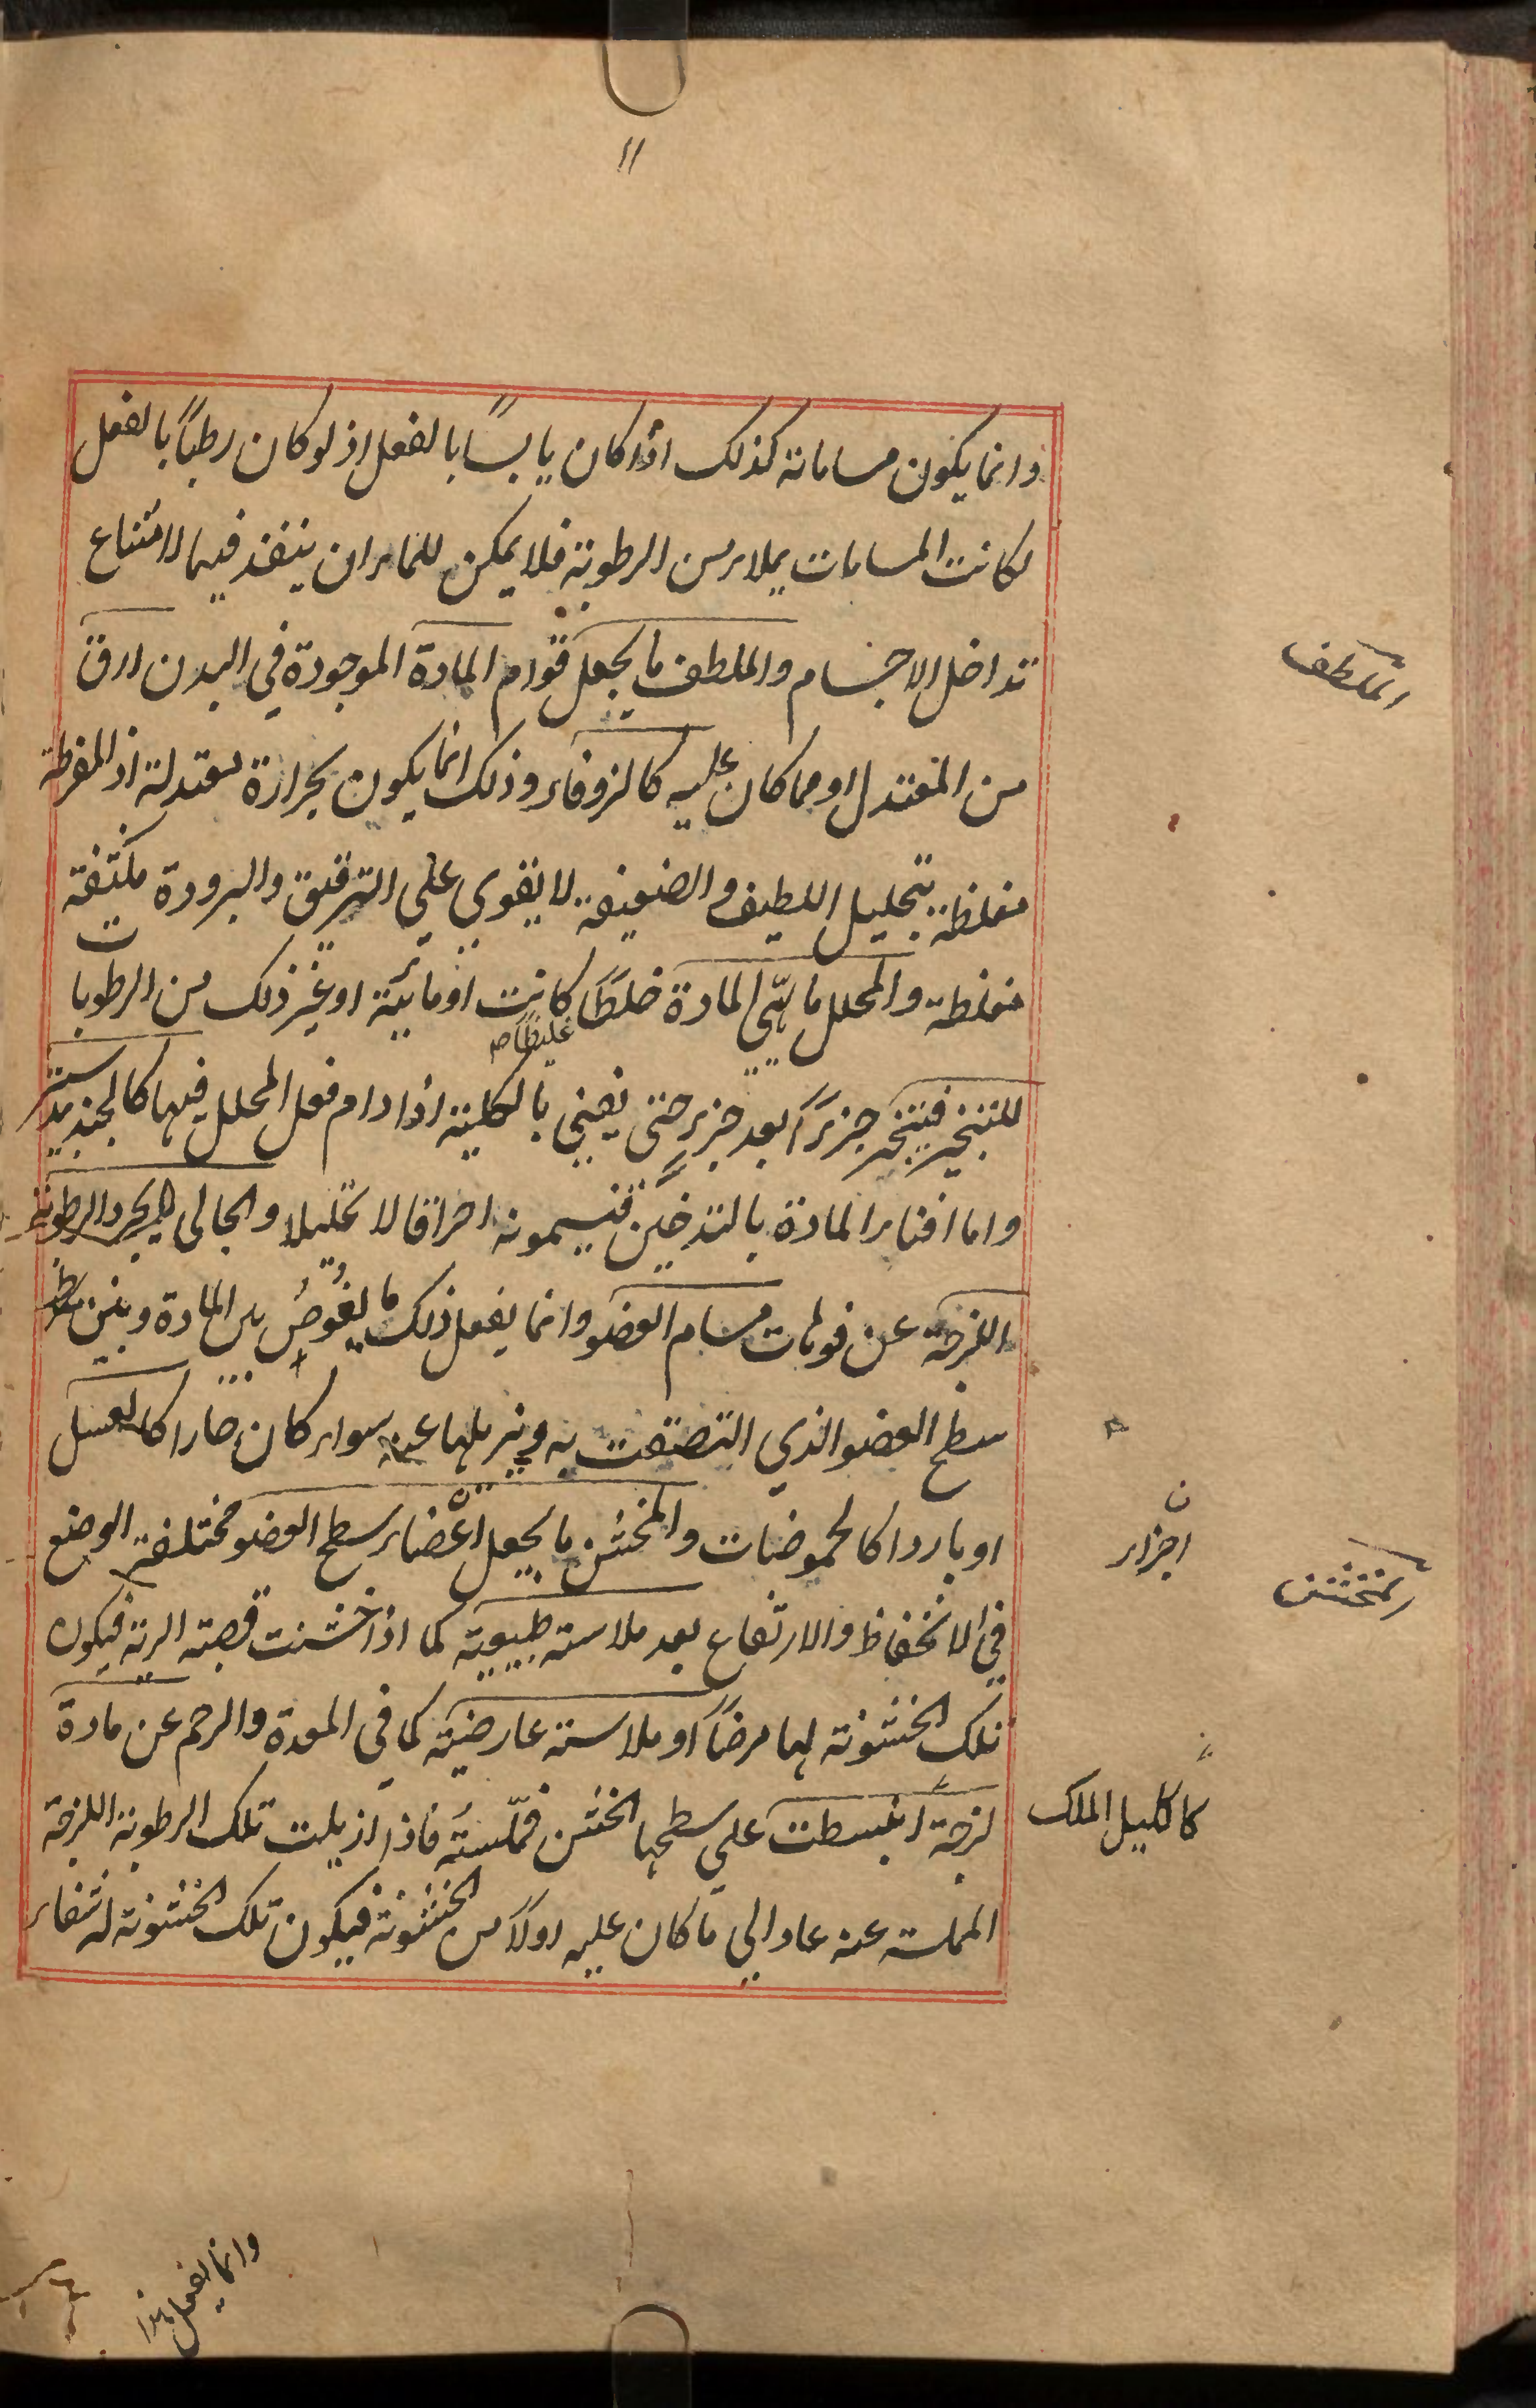 ۱۱
وانما يكون مساماته كذلك اذا كان يابسًا بالفعل اذ لو كان رطبًا بالفعل
لكانت المسامات مملاء من الرطوبة فلا يمكن للماء ان ينفذ فيها لامتناع
تداخل الاجسام والملطف ما يجعل قوام المادة الموجودة في البدن ارق
الملطف
من المعتدل او مما كان عليه كالزوفاء وذلك انما يكون بحرارة معتدلة اذ المفرطة
مغلظة بتحليل اللطيف والضعيفة لا يقوي علي الترقيق والبرودة مكثفة
مغلظة والمحلل ما يهيّ المادة خلطًا كانت او مائية او غير ذلك من الرطوبات
غليظا
للتبخير فيتبخر جزءًا بعد جزء حتى يفني بالكلية اذا دام فعل المحلل فيها كالجندبيدستر
واما افناء المادة بالتدخين فيسمونه احراقا لا تحليلا والجالي ما يجرد الرطوبة
اللزجة عن فوهات مسام العضو وانما يفعل ذلك ما يغوص بين المادة وبين
سطح العضو الذي التصقت به ويزيلها عنه سواء كان حارا كالعسل
او باردا كالحموضات والمخشن ما يجعل اعضاء سطح العضو مختلفة الوضع
ن
اجزاء
المخشن
في الانخفاظ والارتفاع بعد ملاسته طبيعية كما اذا خشنت قصبته الرية فيكون
تلك الخشونة لها مرضًا او ملاسته عارضية كما في المعدة والرحم عن مادة
لزجة انبسطت علي سطحها الخشن فملّسته فاذا ازيلت تلك الرطوبة اللزجة
كاكليل الملك
المملسة عنه عاد الي ما كان عليه اولًا من الخشونة فيكون تلك الخشونة له شفاء
وانما يفعل هذا